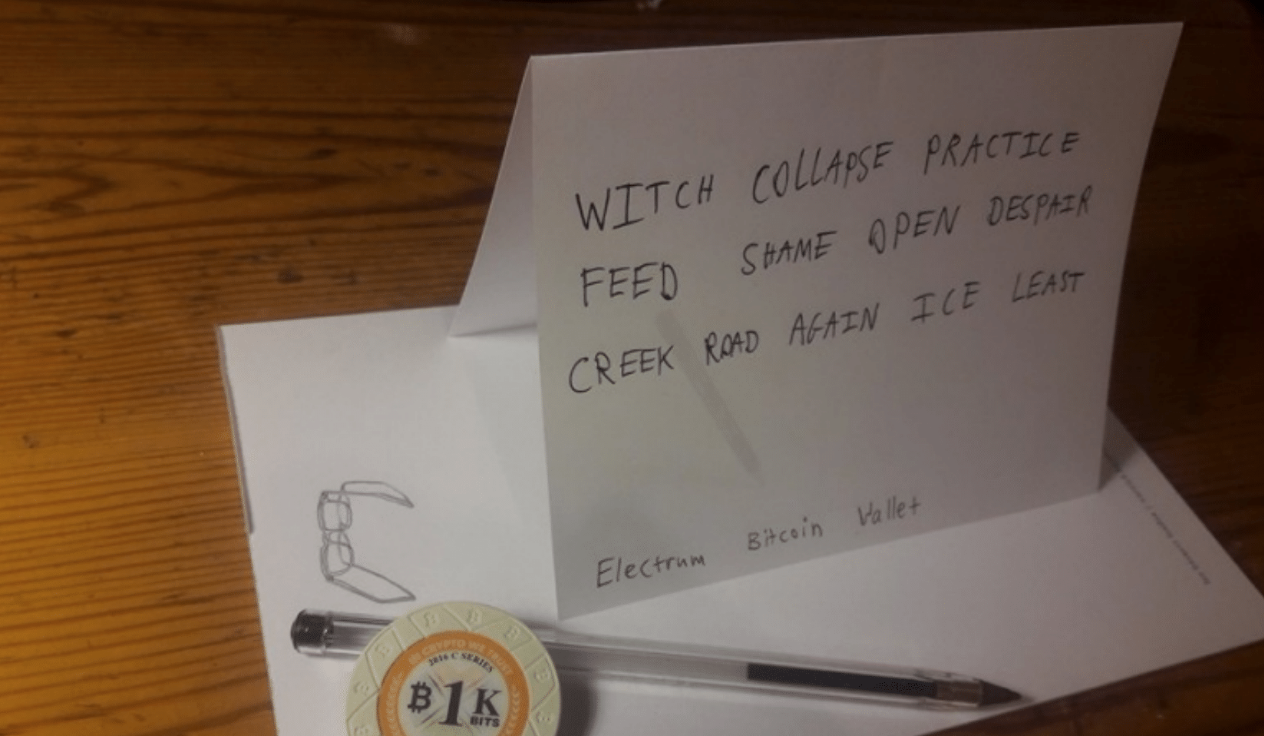 WITCH COLLAPSE PRACTICE
FEED SHAME OPEN DESPAIR
CREEK ROAD AGAIN ICE LEAST
Electrum Bitcoin Wallet
IN CRYPTO WE TRUST
2016 C SERIES
₿1K
BITS